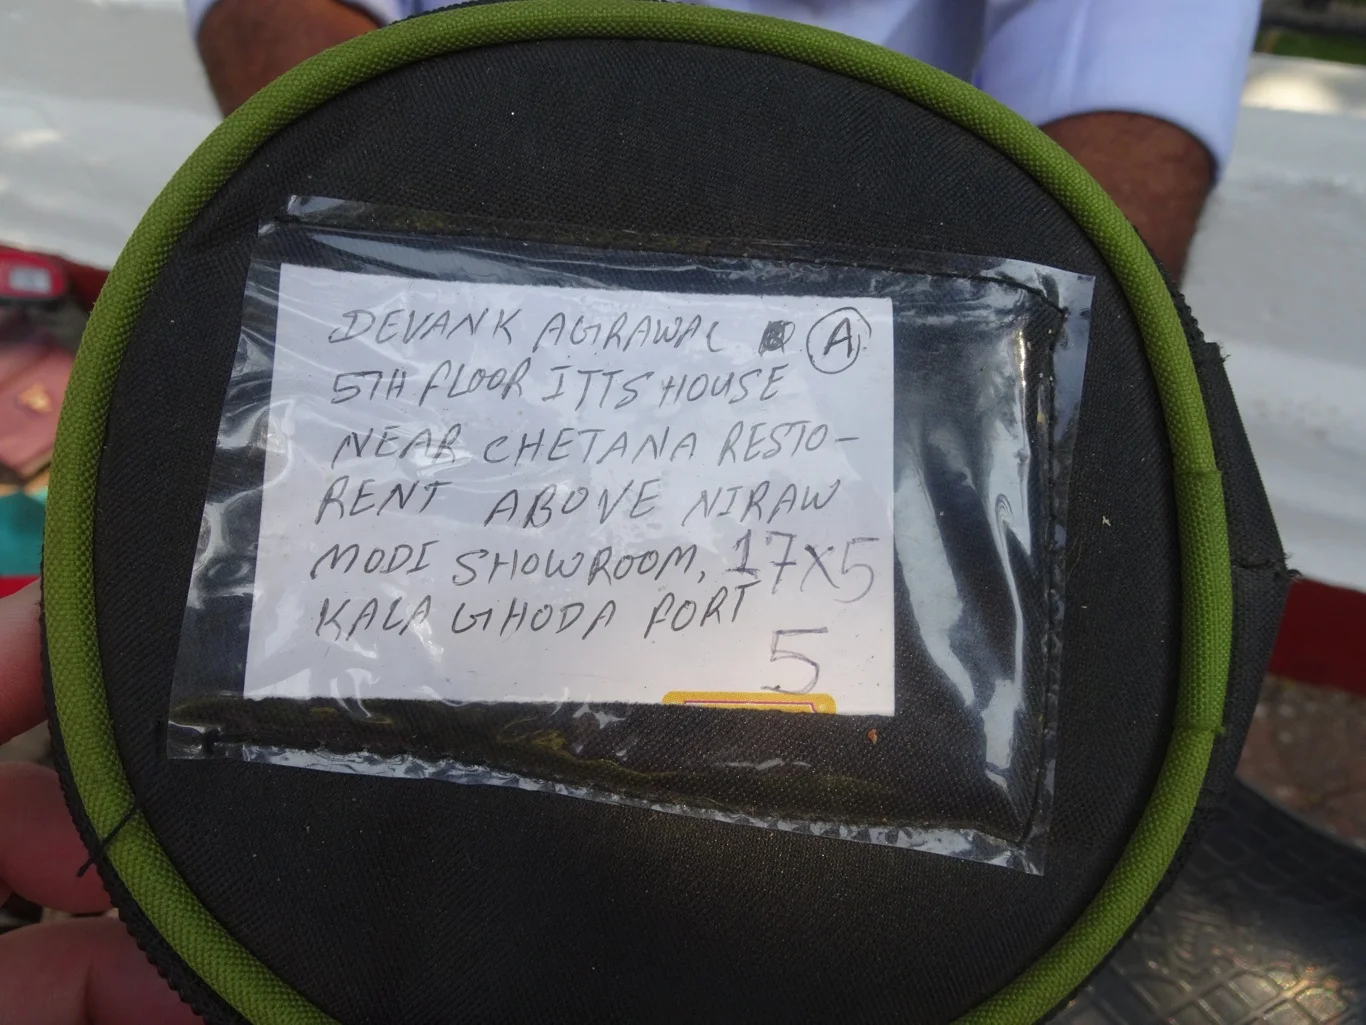 DEVANK AGRAWAL A
5TH FLOOR ITTS HOUSE
NEAR CHETANA RESTO-
RENT ABOVE NIRAW
MODI SHOWROOM, 17X5
KALA GHODA FORT
5